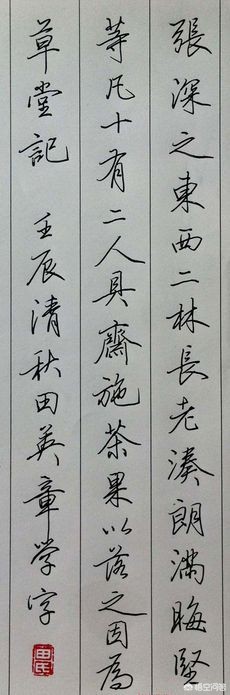 張深之東西二林長老湊朗滿晦堅
等凡十有二人具齋施茶果以落之因為
草堂記 壬辰清秋田英章学字
田氏
悟空问答